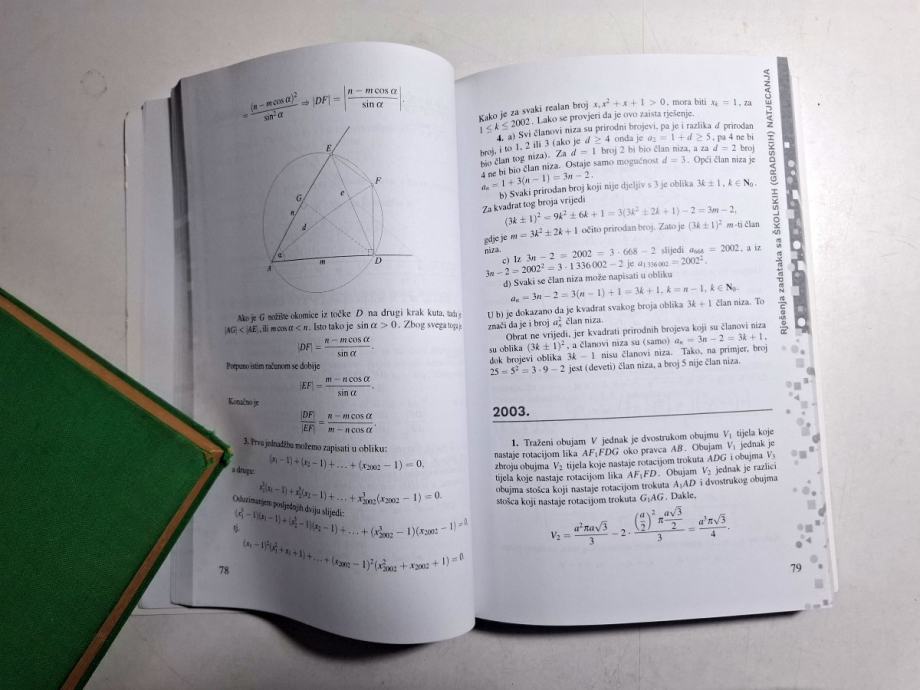 = (n − m cos α)² / sin² α ⇒ |DF| = |(n − m cos α) / sin α|.
E
F
G
e
n
d
α
A
m
D
Ako je G nožište okomice iz točke D na drugi krak kuta, tada je
|AG| < |AE|, ili m cos α < n. Isto tako je sin α > 0. Zbog svega toga je
|DF| = (n − m cos α) / sin α.
Potpuno istim računom se dobije
|EF| = (m − n cos α) / sin α.
Konačno je
|DF| / |EF| = (n − m cos α) / (m − n cos α).
3. Prvu jednadžbu možemo zapisati u obliku:
(x₁ − 1) + (x₂ − 1) + … + (x₂₀₀₂ − 1) = 0,
a drugu:
x₁³(x₁ − 1) + x₂³(x₂ − 1) + … + x³₂₀₀₂(x₂₀₀₂ − 1) = 0.
Oduzimanjem posljednjih dviju slijedi:
(x₁³ − 1)(x₁ − 1) + (x₂³ − 1)(x₂ − 1) + … + (x³₂₀₀₂ − 1)(x₂₀₀₂ − 1) = 0
tj.
(x₁ − 1)²(x₁² + x₁ + 1) + … + (x₂₀₀₂ − 1)²(x²₂₀₀₂ + x₂₀₀₂ + 1) = 0.
78
Kako je za svaki realan broj x, x² + x + 1 > 0, mora biti xₖ = 1, za
1 ≤ k ≤ 2002. Lako se provjeri da je ovo zaista rješenje.
4. a) Svi članovi niza su prirodni brojevi, pa je i razlika d prirodan
broj, i to 1, 2 ili 3 (ako je d ≥ 4 onda je a₂ = 1 + d ≥ 5, pa 4 ne bi
bio član tog niza). Za d = 1 broj 2 bi bio član niza, a za d = 2 broj
4 ne bi bio član niza. Ostaje samo mogućnost d = 3. Opći član niza je
aₙ = 1 + 3(n − 1) = 3n − 2.
b) Svaki prirodan broj koji nije djeljiv s 3 je oblika 3k ± 1, k ∈ N₀.
Za kvadrat tog broja vrijedi
(3k ± 1)² = 9k² ± 6k + 1 = 3(3k² ± 2k + 1) − 2 = 3m − 2,
gdje je m = 3k² ± 2k + 1 očito prirodan broj. Zato je (3k ± 1)² m-ti član
niza.
c) Iz 3n − 2 = 2002 = 3 · 668 − 2 slijedi a₆₆₈ = 2002, a iz
3n − 2 = 2002² = 3 · 1 336 002 − 2 je a₁ ₃₃₆ ₀₀₂ = 2002².
d) Svaki se član niza može napisati u obliku
aₙ = 3n − 2 = 3(n − 1) + 1 = 3k + 1, k = n − 1, k ∈ N₀.
U b) je dokazano da je kvadrat svakog broja oblika 3k + 1 član niza. To
znači da je i broj aₙ² član niza.
Obrat ne vrijedi, jer kvadrati prirodnih brojeva koji su članovi niza
su oblika (3k ± 1)², a članovi niza su (samo) aₙ = 3n − 2 = 3k + 1,
dok brojevi oblika 3k − 1 nisu članovi niza. Tako, na primjer, broj
25 = 5² = 3 · 9 − 2 jest (deveti) član niza, a broj 5 nije član niza.
2003.
1. Traženi obujam V jednak je dvostrukom obujmu V₁ tijela koje
nastaje rotacijom lika AF₁FDG oko pravca AB. Obujam V₁ jednak je
zbroju obujma V₂ tijela koje nastaje rotacijom trokuta ADG i obujma V₃
tijela koje nastaje rotacijom lika AF₁FD. Obujam V₂ jednak je razlici
obujma stošca koji nastaje rotacijom trokuta A₁AD i dvostrukog obujma
stošca koji nastaje rotacijom trokuta G₁AG. Dakle,
V₂ = a²πa√3 / 3 − 2 · (a/2)² π (a√3/2) / 3 = a³π√3 / 4.
79
Rješenja zadataka sa ŠKOLSKIH (GRADSKIH) NATJECANJA